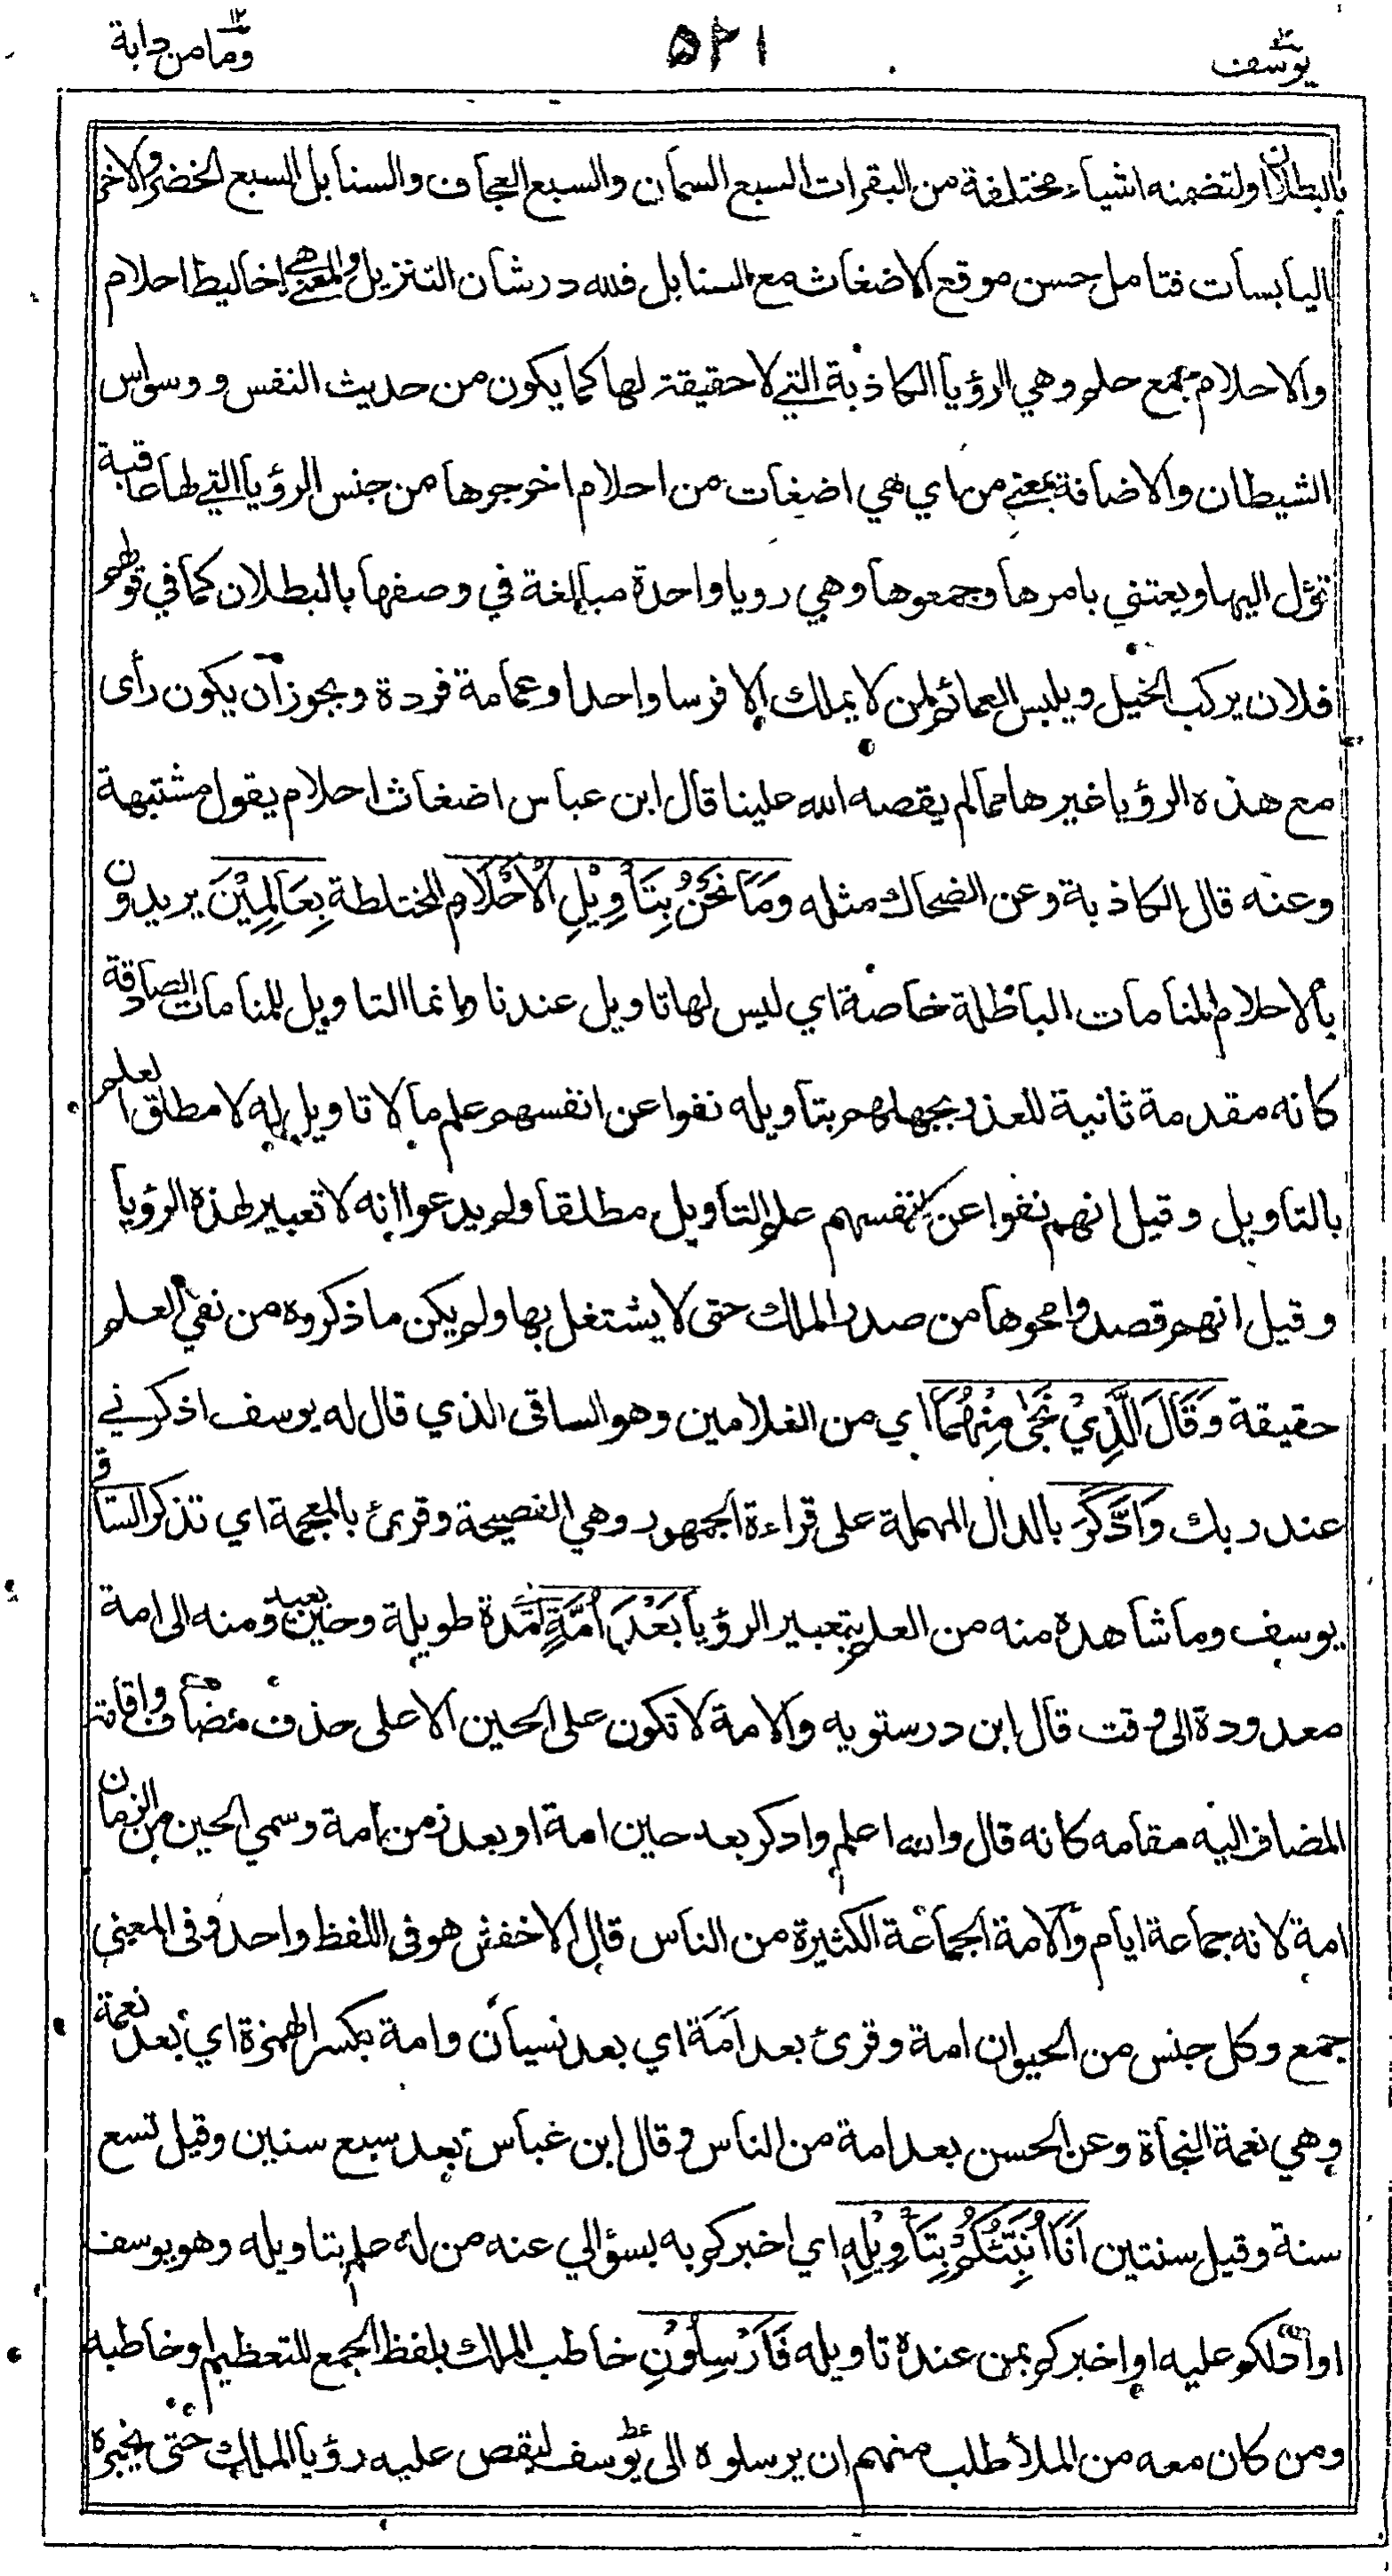 يوسف ١٢
٥٢١
وما من دابة ١٢
بالبطلان او لتضمنه اشياء مختلفة من البقرات السبع السمان والسبع العجاف والسنابل السبع الخضر والاخر
اليابسات فتامل حسن موقع الاضغاث مع السنابل فلله در شان التنزيل والمعنى هي اخاليط احلام
والاحلام جمع حلم وهي الرؤيا الكاذبة التي لا حقيقة لها كما يكون من حديث النفس ووسواس
الشيطان والاضافة بمعنى من اي هي اضغاث من احلام اخرجوها من جنس الرؤيا التي لها عاقبة
تؤل اليها ويعتنى بامرها وجمعوها وهي رويا واحدة مبالغة في وصفها بالبطلان كما في قولهم
فلان يركب الخيل ويلبس العمائم لمن لا يملك الا فرسا واحدا وعمامة فردة ويجوز ان يكون رأى
مع هذه الرؤيا غيرها مما لم يقصه الله علينا قال ابن عباس اضغاث احلام يقول مشتبهة
وعنه قال الكاذبة وعن الضحاك مثله وَمَا نَحْنُ بِتَأْوِيْلِ الْاَحْلَامِ المختلطة بِعَالِمِيْنَ يريدون
بالاحلام المنامات الباطلة خاصة اي ليس لها تاويل عندنا وانما التاويل للمنامات الصادقة
كانه مقدمة ثانية للعذر بجهلهم بتاويله نفوا عن انفسهم علم ما لا تاويل له لا مطلق العلم
بالتاويل وقيل انهم نفوا عن انفسهم علم التاويل مطلقا ولم يدعوا انه لا تعبير لهذه الرؤيا
وقيل انهم قصدوا محوها من صدر الملك حتى لا يشتغل بها ولم يكن ما ذكروه من نفي العلم
حقيقة وَقَالَ الَّذِيْ نَجٰى مِنْهُمَا اي من الغلامين وهو الساقى الذي قال له يوسف اذكرني
عند ربك وَادَّكَرَ بالدال المهملة على قراءة الجمهور وهي الفصيحة وقرئ بالمعجمة اي تذكر الساقي
يوسف وما شاهده منه من العلم بتعبير الرؤيا بَعْدَ اُمَّةٍ اي مدة طويلة وحين بعيد ومنه الى امة
معدودة الى وقت قال ابن درستويه والامة لا تكون على الحين الا على حذف مضاف واقامة
المضاف اليه مقامه كانه قال والله اعلم وادكر بعد حين امة او بعد زمن امة وسمي الحين من الزمان
امة لانه جماعة ايام والامة الجماعة الكثيرة من الناس قال الاخفش هو في اللفظ واحد وفى المعنى
جمع وكل جنس من الحيوان امة وقرئ بعد اَمَة اي بعد نسيان وامة بكسر الهمزة اي بعد نعمة
وهي نعمة النجاة وعن الحسن بعد امة من الناس وقال ابن عباس بعد سبع سنين وقيل تسع
سنة وقيل سنتين اَنَا اُنَبِّئُكُمْ بِتَأْوِيْلِهٖ اي اخبركم به بسؤالي عنه من له علم بتاويله وهو يوسف
او ادلكم عليه او اخبركم بمن عنده تاويله فَاَرْسِلُوْنِ خاطب الملك بلفظ الجمع للتعظيم او خاطبه
ومن كان معه من الملأ طلب منهم ان يرسلوه الى يوسف ليقص عليه رؤيا الملك حتى يخبره